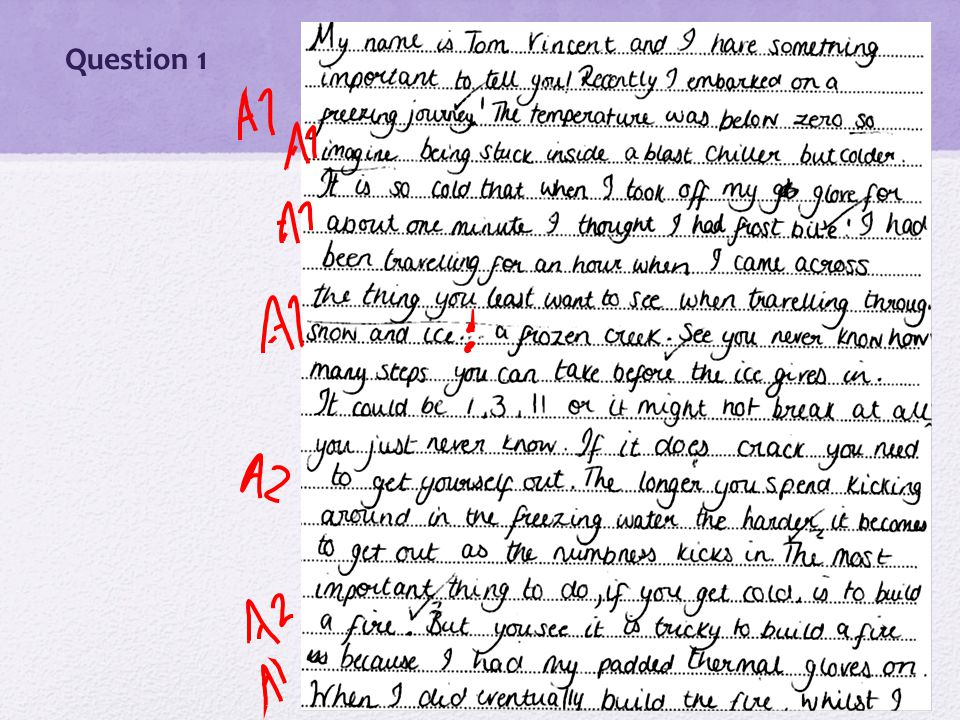 Question 1
My name is Tom Vincent and I have something
important to tell you! Recently I embarked on a
A1 freezing journey! The temperature was below zero so
A1 imagine being stuck inside a blast chiller but colder.
It is so cold that when I took off my glove for
A1 about one minute I thought I had frost bite! I had
been travelling for an hour when I came across
the thing you least want to see when travelling throug
A1 snow and ice... a frozen creek. See you never know how
many steps you can take before the ice gives in.
It could be 1, 3, 11 or it might not break at all,
you just never know. If it does crack you need
A2 to get yourself out. The longer you spend kicking
around in the freezing water the harder it becomes
to get out as the numbness kicks in. The most
important thing to do, if you get cold, is to build
A2 a fire. But you see it is tricky to build a fire
A1 because I had my padded thermal gloves on.
When I did eventually build the fire, whilst I